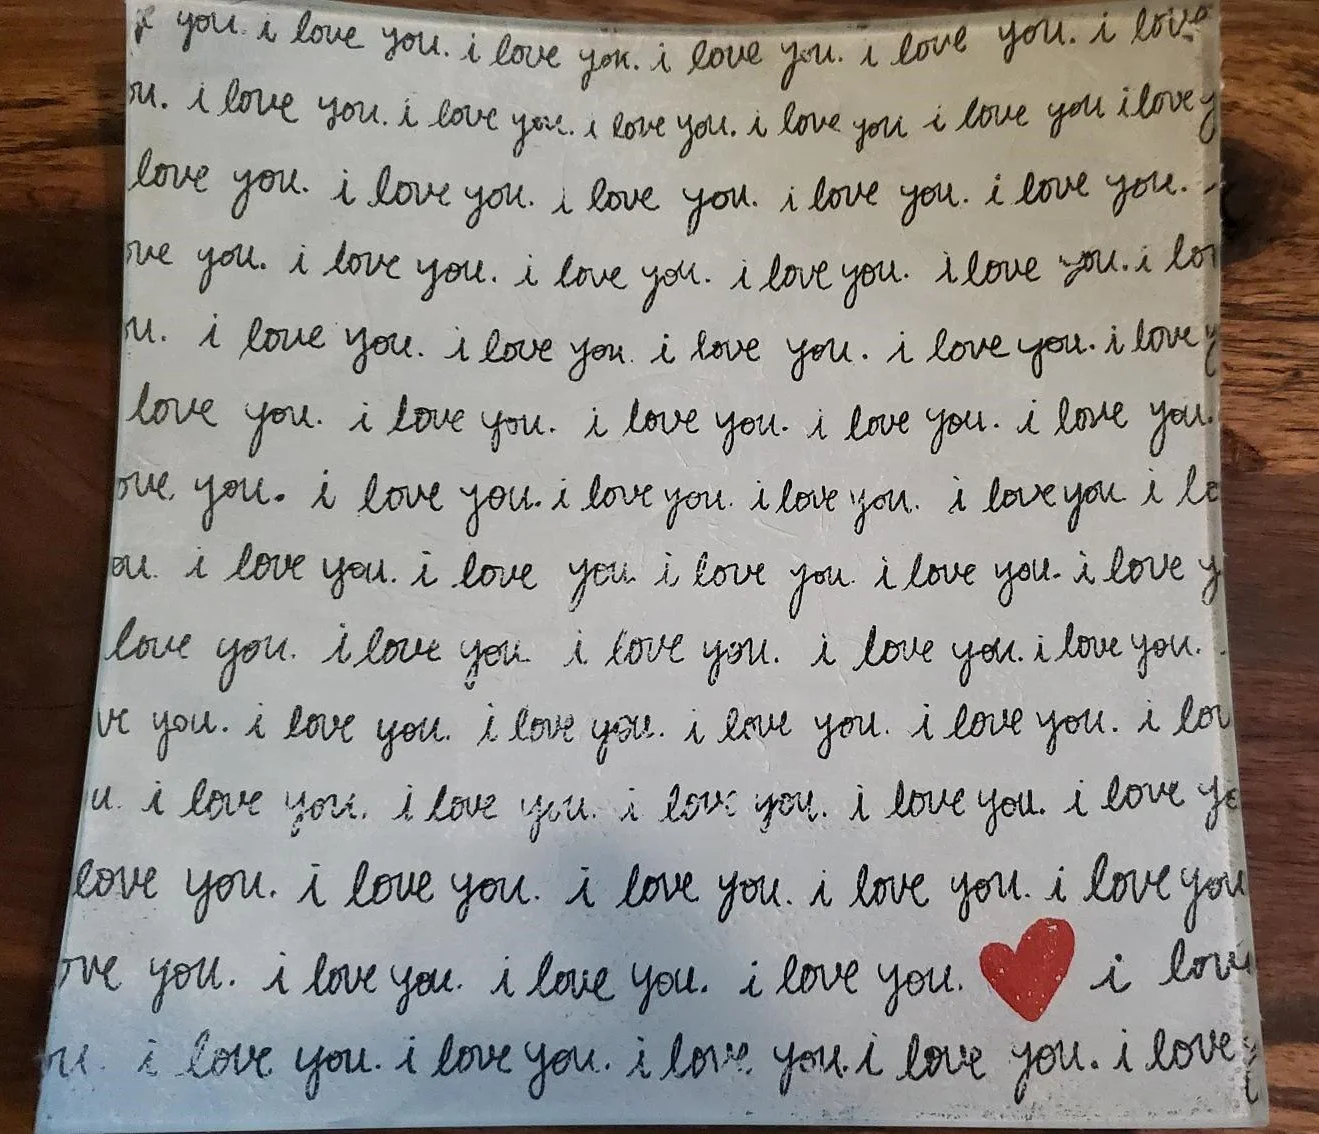 you. i love you. i love you. i love you. i love you. i love
ou. i love you. i love you. i love you. i love you i love you i love y
love you. i love you. i love you. i love you. i love you.
ove you. i love you. i love you. i love you. i love you. i lo
u. i love you. i love you. i love you. i love you. i love y
love you. i love you. i love you. i love you. i love you.
ove you. i love you. i love you. i love you. i love you i lo
ou. i love you. i love you. i love you. i love you. i love y
love you. i love you. i love you. i love you. i love you.
ve you. i love you. i love you. i love you. i love you. i lov
u. i love you. i love you. i love you. i love you. i love yo
love you. i love you. i love you. i love you. i love you
ove you. i love you. i love you. i love you. i love
ou. i love you. i love you. i love you. i love you. i love y